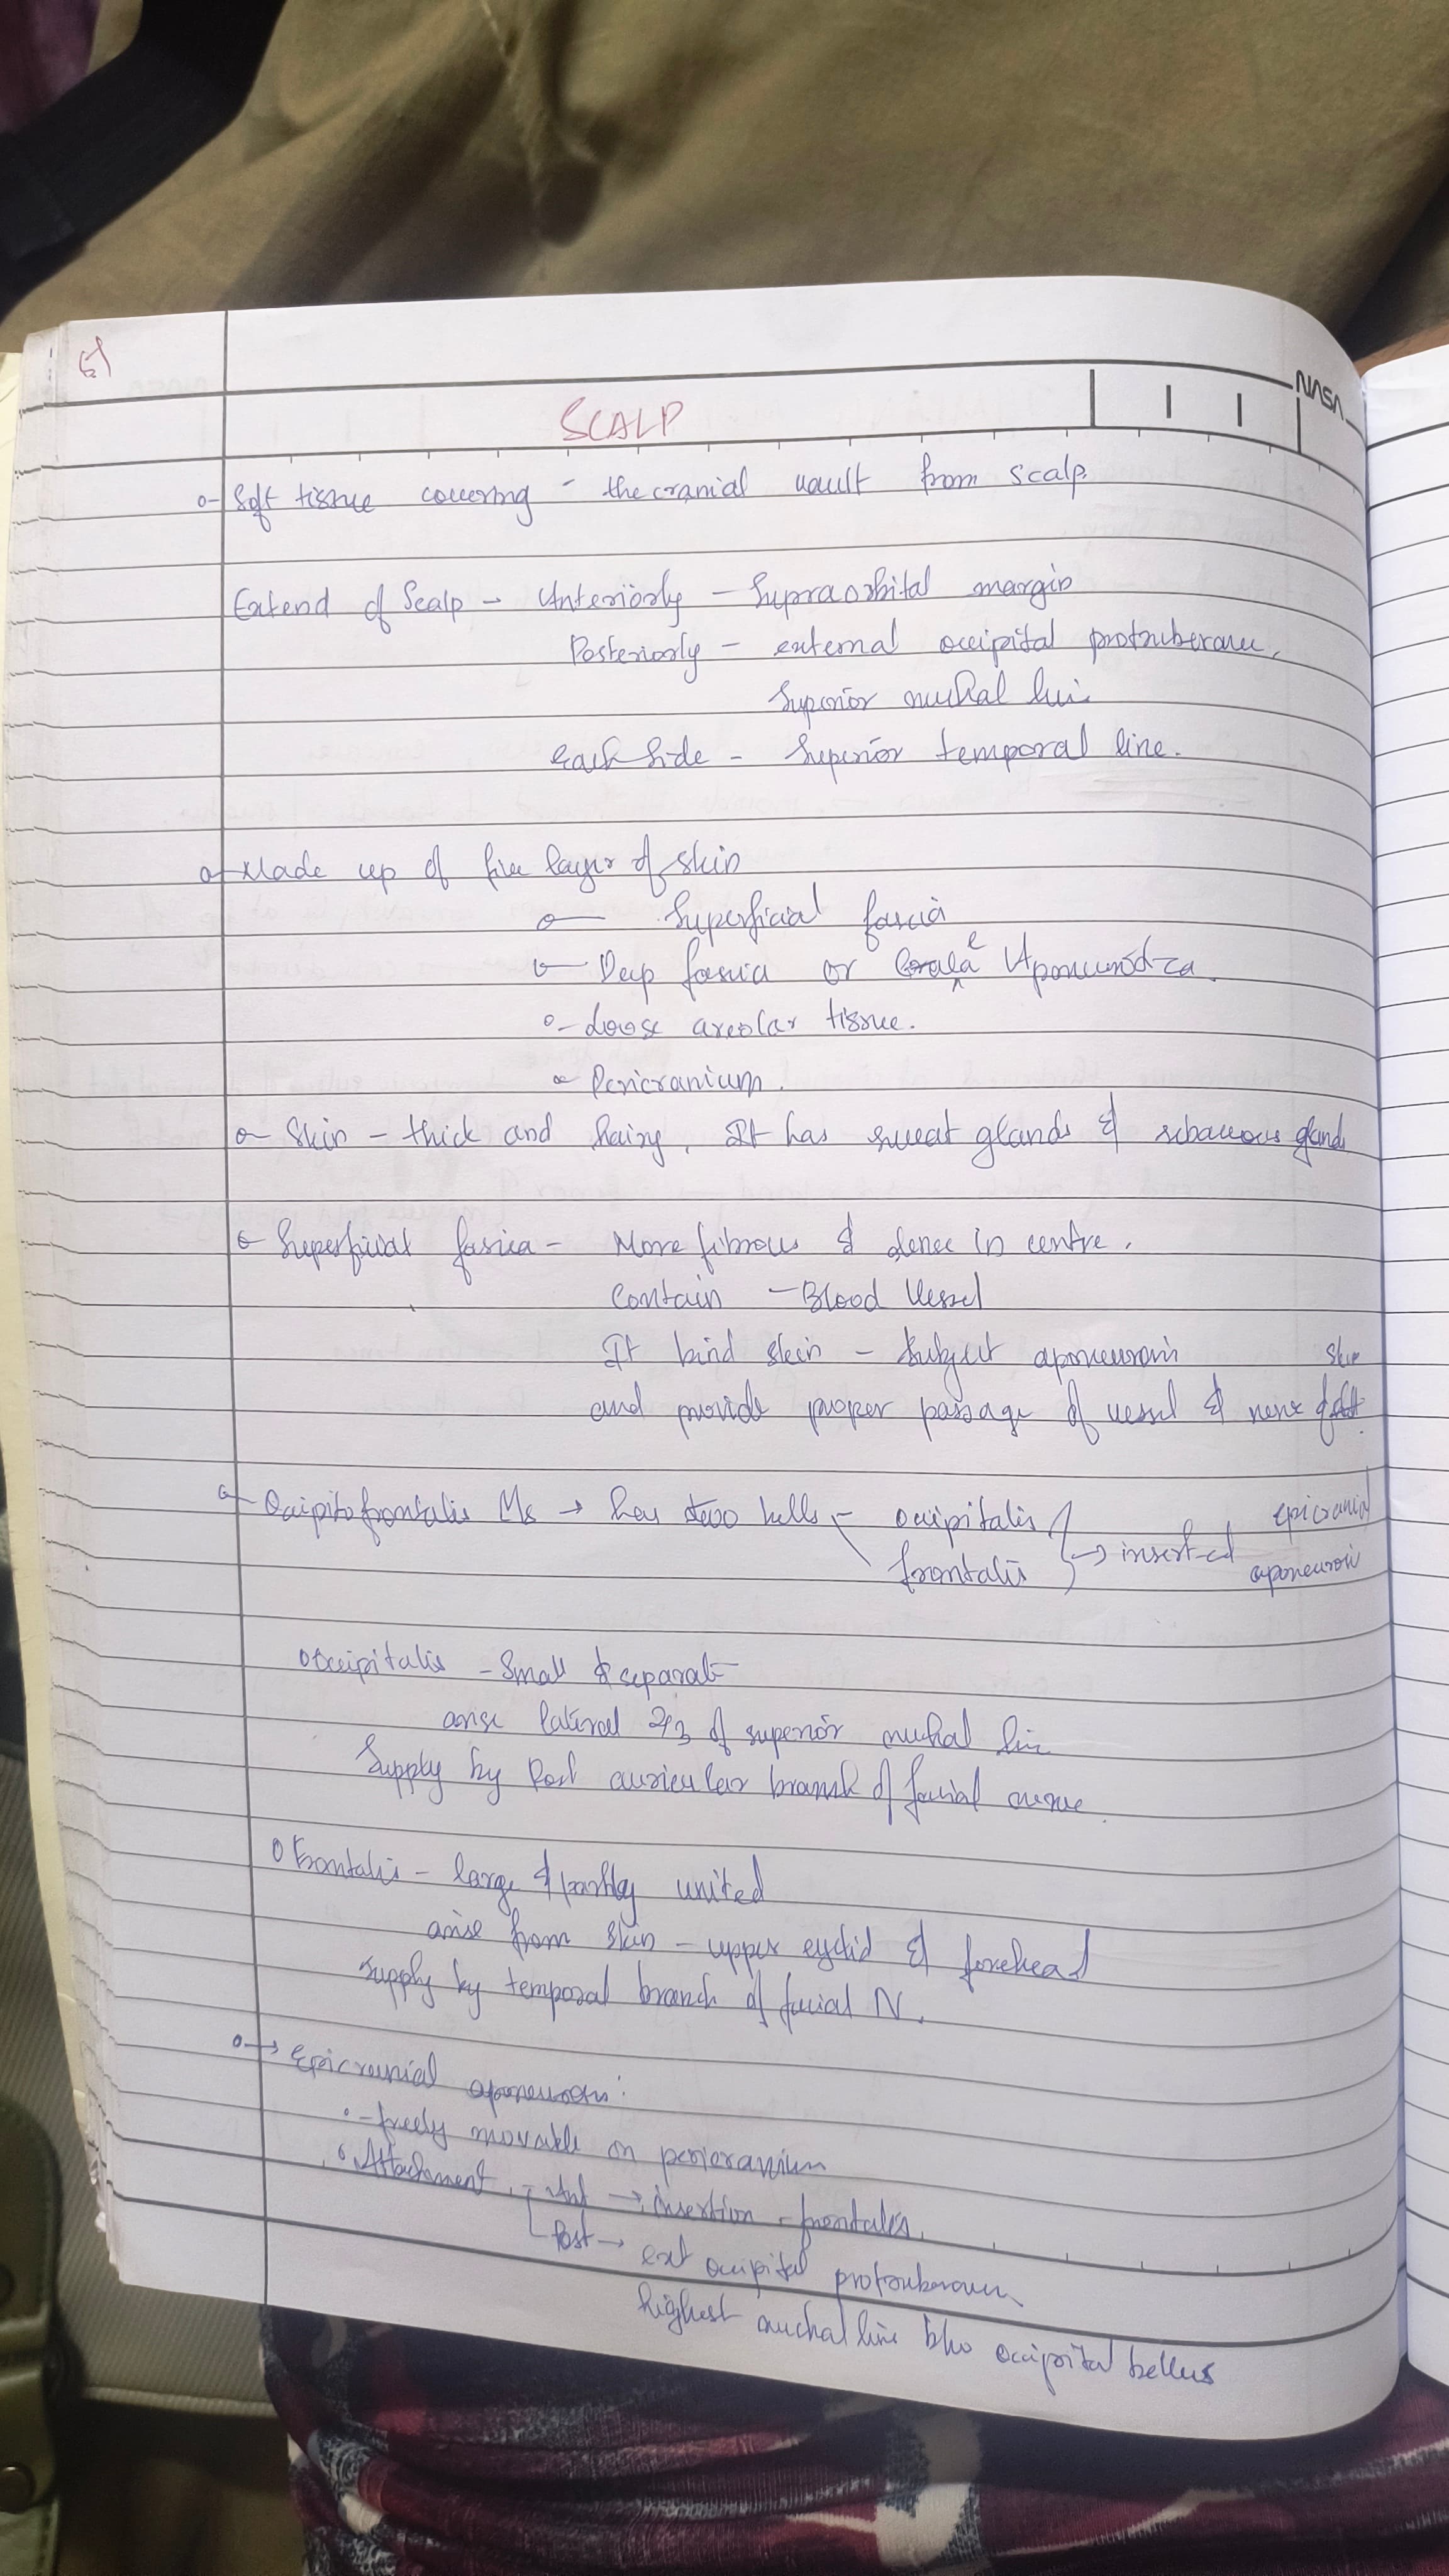 5)
NASA
SCALP
o- Soft tissue covering - the cranial vault from scalp.
Extend of Scalp - Anteriorly - Supraorbital margin
Posteriorly - external occipital protruberance,
Superior nuchal line
each side - Superior temporal line.
o- Made up of five layer of skin
o- Superficial fascia
o- Deep fascia or Aponeurotica
o- Loose areolar tissue.
o- Pericranium.
o- Skin - thick and hairy. It has sweat glands & sebaceous glands
o- Superficial fascia - More fibrous & dense in centre.
Contain - Blood Vessel
It bind skin - Subject aponeurosis
and provide proper passage of vessel & nerve of skin
o- Occipitofrontalis Ms → has two bells - occipitalis
frontalis → inserted epicranial aponeurosis
Occipitalis - Small & separate
arise lateral 2/3 of superior nuchal line
Supply by Post auricular branch of facial nerve
o Frontalis - large & partly united
arise from skin - upper eyelid & forehead
Supply by temporal branch of facial N.
o→ Epicranial aponeurosis:
o- freely movable on pericranium
o Attachment - Ant → insertion - frontalis.
Post → ext occipital protruberance
highest nuchal line btw occipital bellies